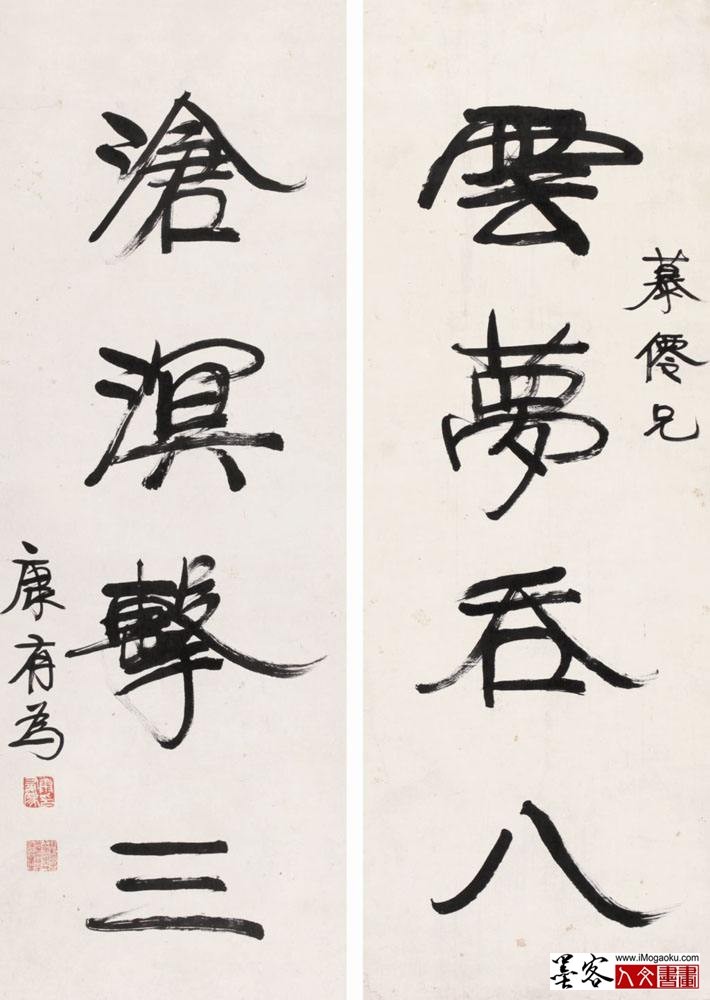 雲夢吞八
慕僊兄
滄溟擊三
康有為
墨客
www.iMogaoku.com
人文書畫